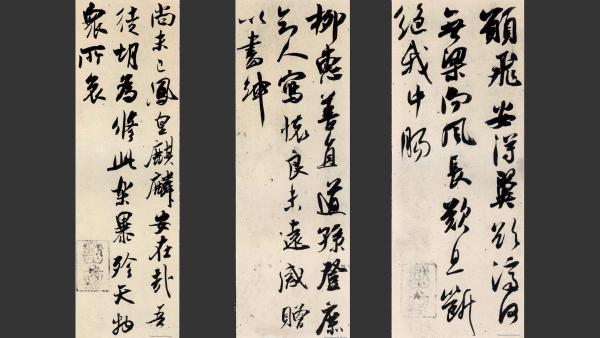 願飛安得翼欲濟河
無梁向風長歎息斷
絕我中腸
柳惠善直道孫登庶
知人寫懷良未遠感贈
以書紳
尚未已鳳皇麒麟安在哉吾
徒胡為縱此樂暴殄天物
所哀